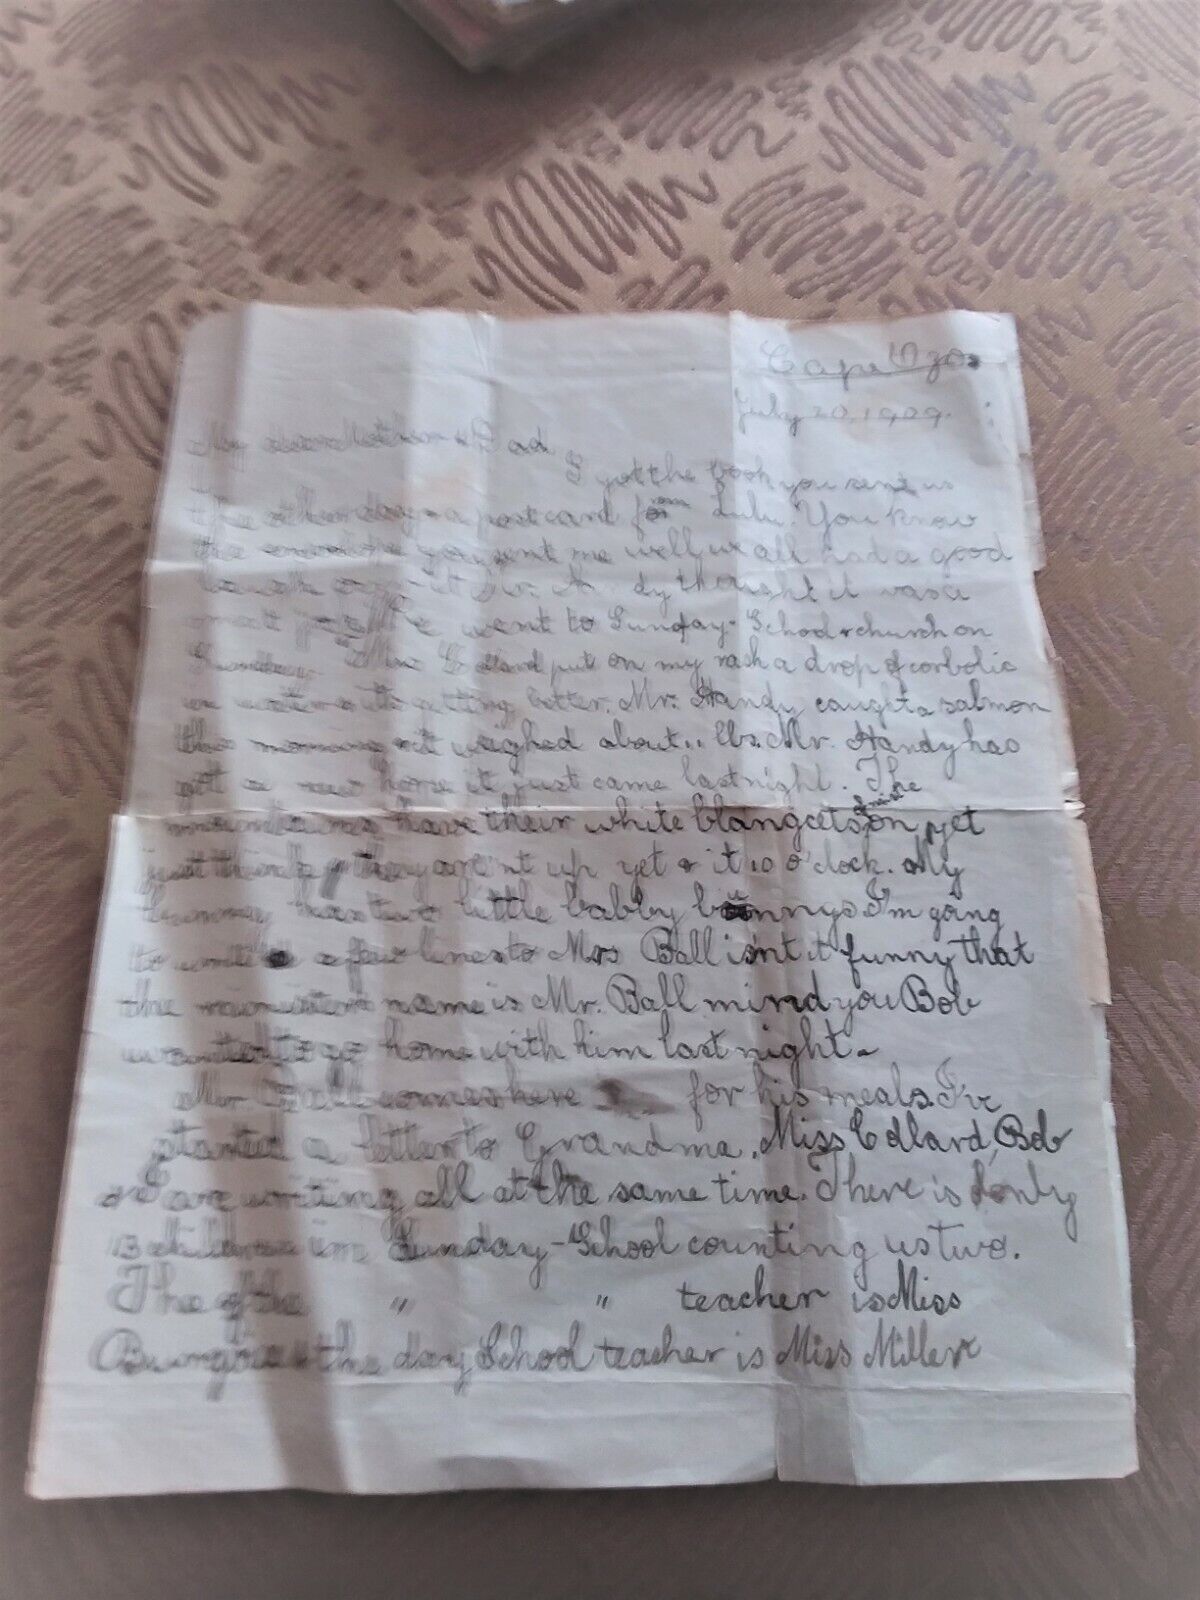 Cape Ozo.
July 20, 1909.
My dear Mother & Dad
I got the book you sent us
the other day & a postcard from Lulu. You know
the you sent me well, we all had a good
laugh over it Mr. Handy thought it was a
great joke. We went to Sunday-School & church on
Sunday. Miss Collard put on my rash a drop of corbolic
in water & its getting better. Mr. Handy caught a salmon
this morning & it weighed about 11 lbs. Mr. Handy has
got a new horse it just came last night. The
mountains have their white blangcets on yet
just think they are'nt up yet & it 10 o'clock. My
bunny has two little babby bunnys. I'm going
to write a few lines to Mrs Ball isn't it funny that
the ministers name is Mr. Ball mind you Bob
wanted to go home with him last night.
Mr. Ball comes here for his meals. I've
started a letter to Grandma. Miss Collard, Bob
& I are writing all at the same time. There is only
13 children in Sunday-School counting us two.
The of the " " teacher is Miss
& the day School teacher is Miss Miller